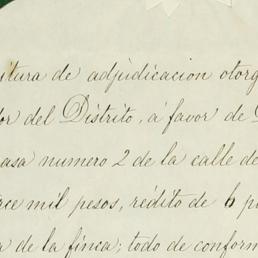 itura de adjudicacion otorg
or del Distrito, á favor de
asa numero 2 de la calle de
ce mil pesos, rédito de 6 p
a de la finca; todo de conform